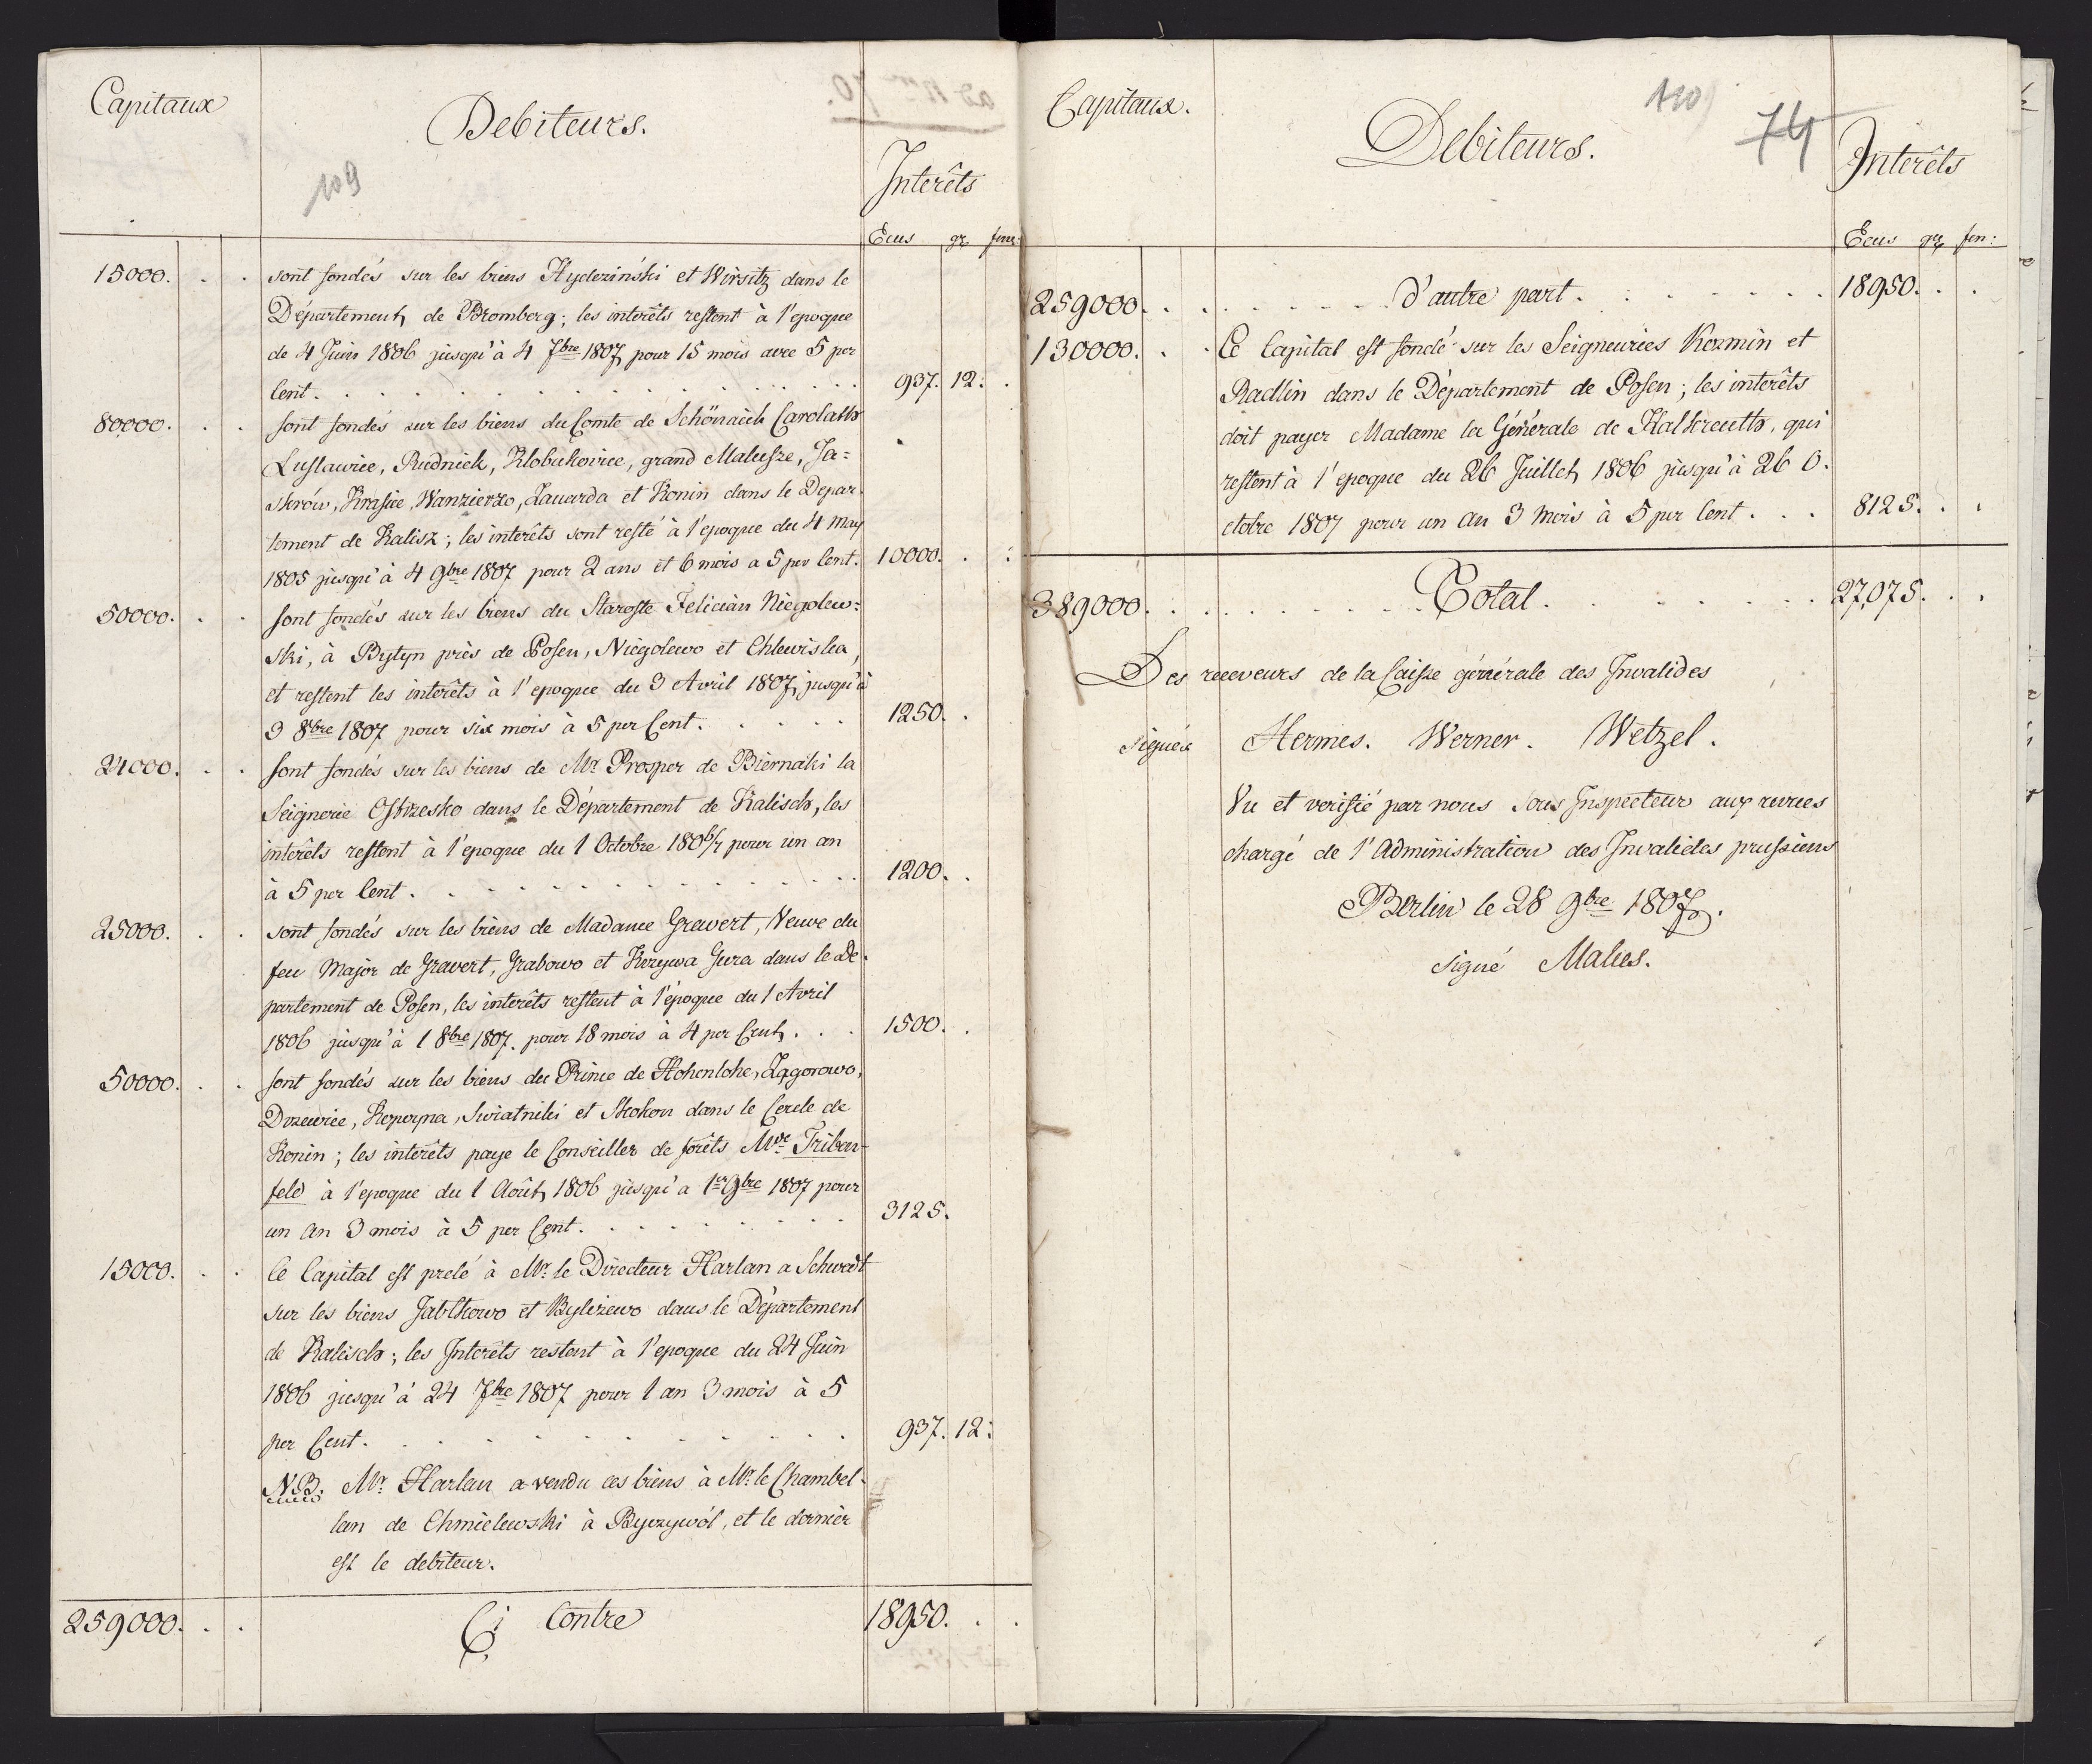 Capitaux
Debiteurs.
109
Interêts
Ecus gr fenn:
15000. . . sont fondés sur les biens Hyderzinski et Wirsitz dans le
Département de Bromberg; les interêts restent à l'epoque
de 4 Juin 1806 jusqu'à 4 7bre 1807 pour 15 mois avec 5 per
Cent. 937. 12.
80000. . . sont fondés sur les biens du Comte de Schönaich Carolath
Luslawice, Rudnick, Klobukowice, grand Malusze, Ja=
skrów, Krasice, Wanzierzo, Zawarda et Konin dans le Depar-
tement de Kalisz; les interêts sont resté à l'epoque du 4 May
1805 jusqu'à 4 9bre 1807 pour 2 ans et 6 mois a 5 per Cent. 10000. . .
50000. . . sont fondés sur les biens du Staroste Felician Niegolew=
ski, à Bytyn près de Posen, Niegolewo et Chlewiska,
et restent les interêts à l'epoque du 3 Avril 1807 jusqu'à
3 8bre 1807 pour six mois à 5 per Cent. 1250. .
24000. . . sont fondés sur les biens de Mr Prosper de Biernacki la
Seignerie Osbrzesko dans le Département de Kalisch, les
interêts restent à l'epoque du 1 Octobre 1806/7 pour un an
à 5 per Cent. 1200. .
25000. . . sont fondés sur les biens de Madame Grawert, Veuve du
feu Major de Grawert, Grabowo et Krzywa Gura dans le De-
partement de Posen, les interêts restent à l'époque du 1 Avril
1806 jusqu'à 1 8bre 1807. pour 18 mois à 4 per Cent. 1500. .
50000. . . sont fondés sur les biens du Prince de Hohenlohe, Zagorowo,
Drzewice, Koporyna, Swiatniki et Skokon dans le Cercle de
Konin; les interêts paye le Conseiller de forêts Mre Triben-
feld à l'epoque du 1 Août 1806 jusqu'a 1er 9bre 1807 pour
un an 3 mois à 5 per Cent. 3125.
15000. . . Ce Capital est preté à Mr le Directeur Harlan a Schwedt
sur les biens Jablkowo et Bylizewo dans le Département
de Kalisch; les Interêts restent à l'epoque du 24 Juin
1806 jusqu'à 24 7bre 1807 pour 1 an 3 mois à 5
per Cent. 937. 12.
NB. Mr. Harlan a vendu ces biens à Mr le Chambel-
lan de Chmielewski à Byczywól, et le dernier
est le debiteur.
259000. . . Ci Contre 18950. . .
Capitaux.
Debiteurs.
110
74
Interêts
Ecus gr fen:
259000. . . d'autre part. 18950. . .
130000. . . Ce Capital est fondé sur les Seigneuries Kozmin et
Radlin dans le Département de Posen; les interêts
doit payer Madame la Générale de Kalkreuth, qui
restent à l'epoque du 26 Juillet 1806 jusqu'à 26 O-
ctobre 1807 pour un an 3 mois à 5 per Cent. 8125. . .
389000. Total. 27,075. . .
Des receveurs de la Caisse générale des Invalides
signés Hermes. Werner. Wetzel.
Vu et verifié par nous sous Inspecteur aux revues
chargé de l'Administration des Invalides prussiens
Berlin le 28 9bre 1807.
signé Malus.